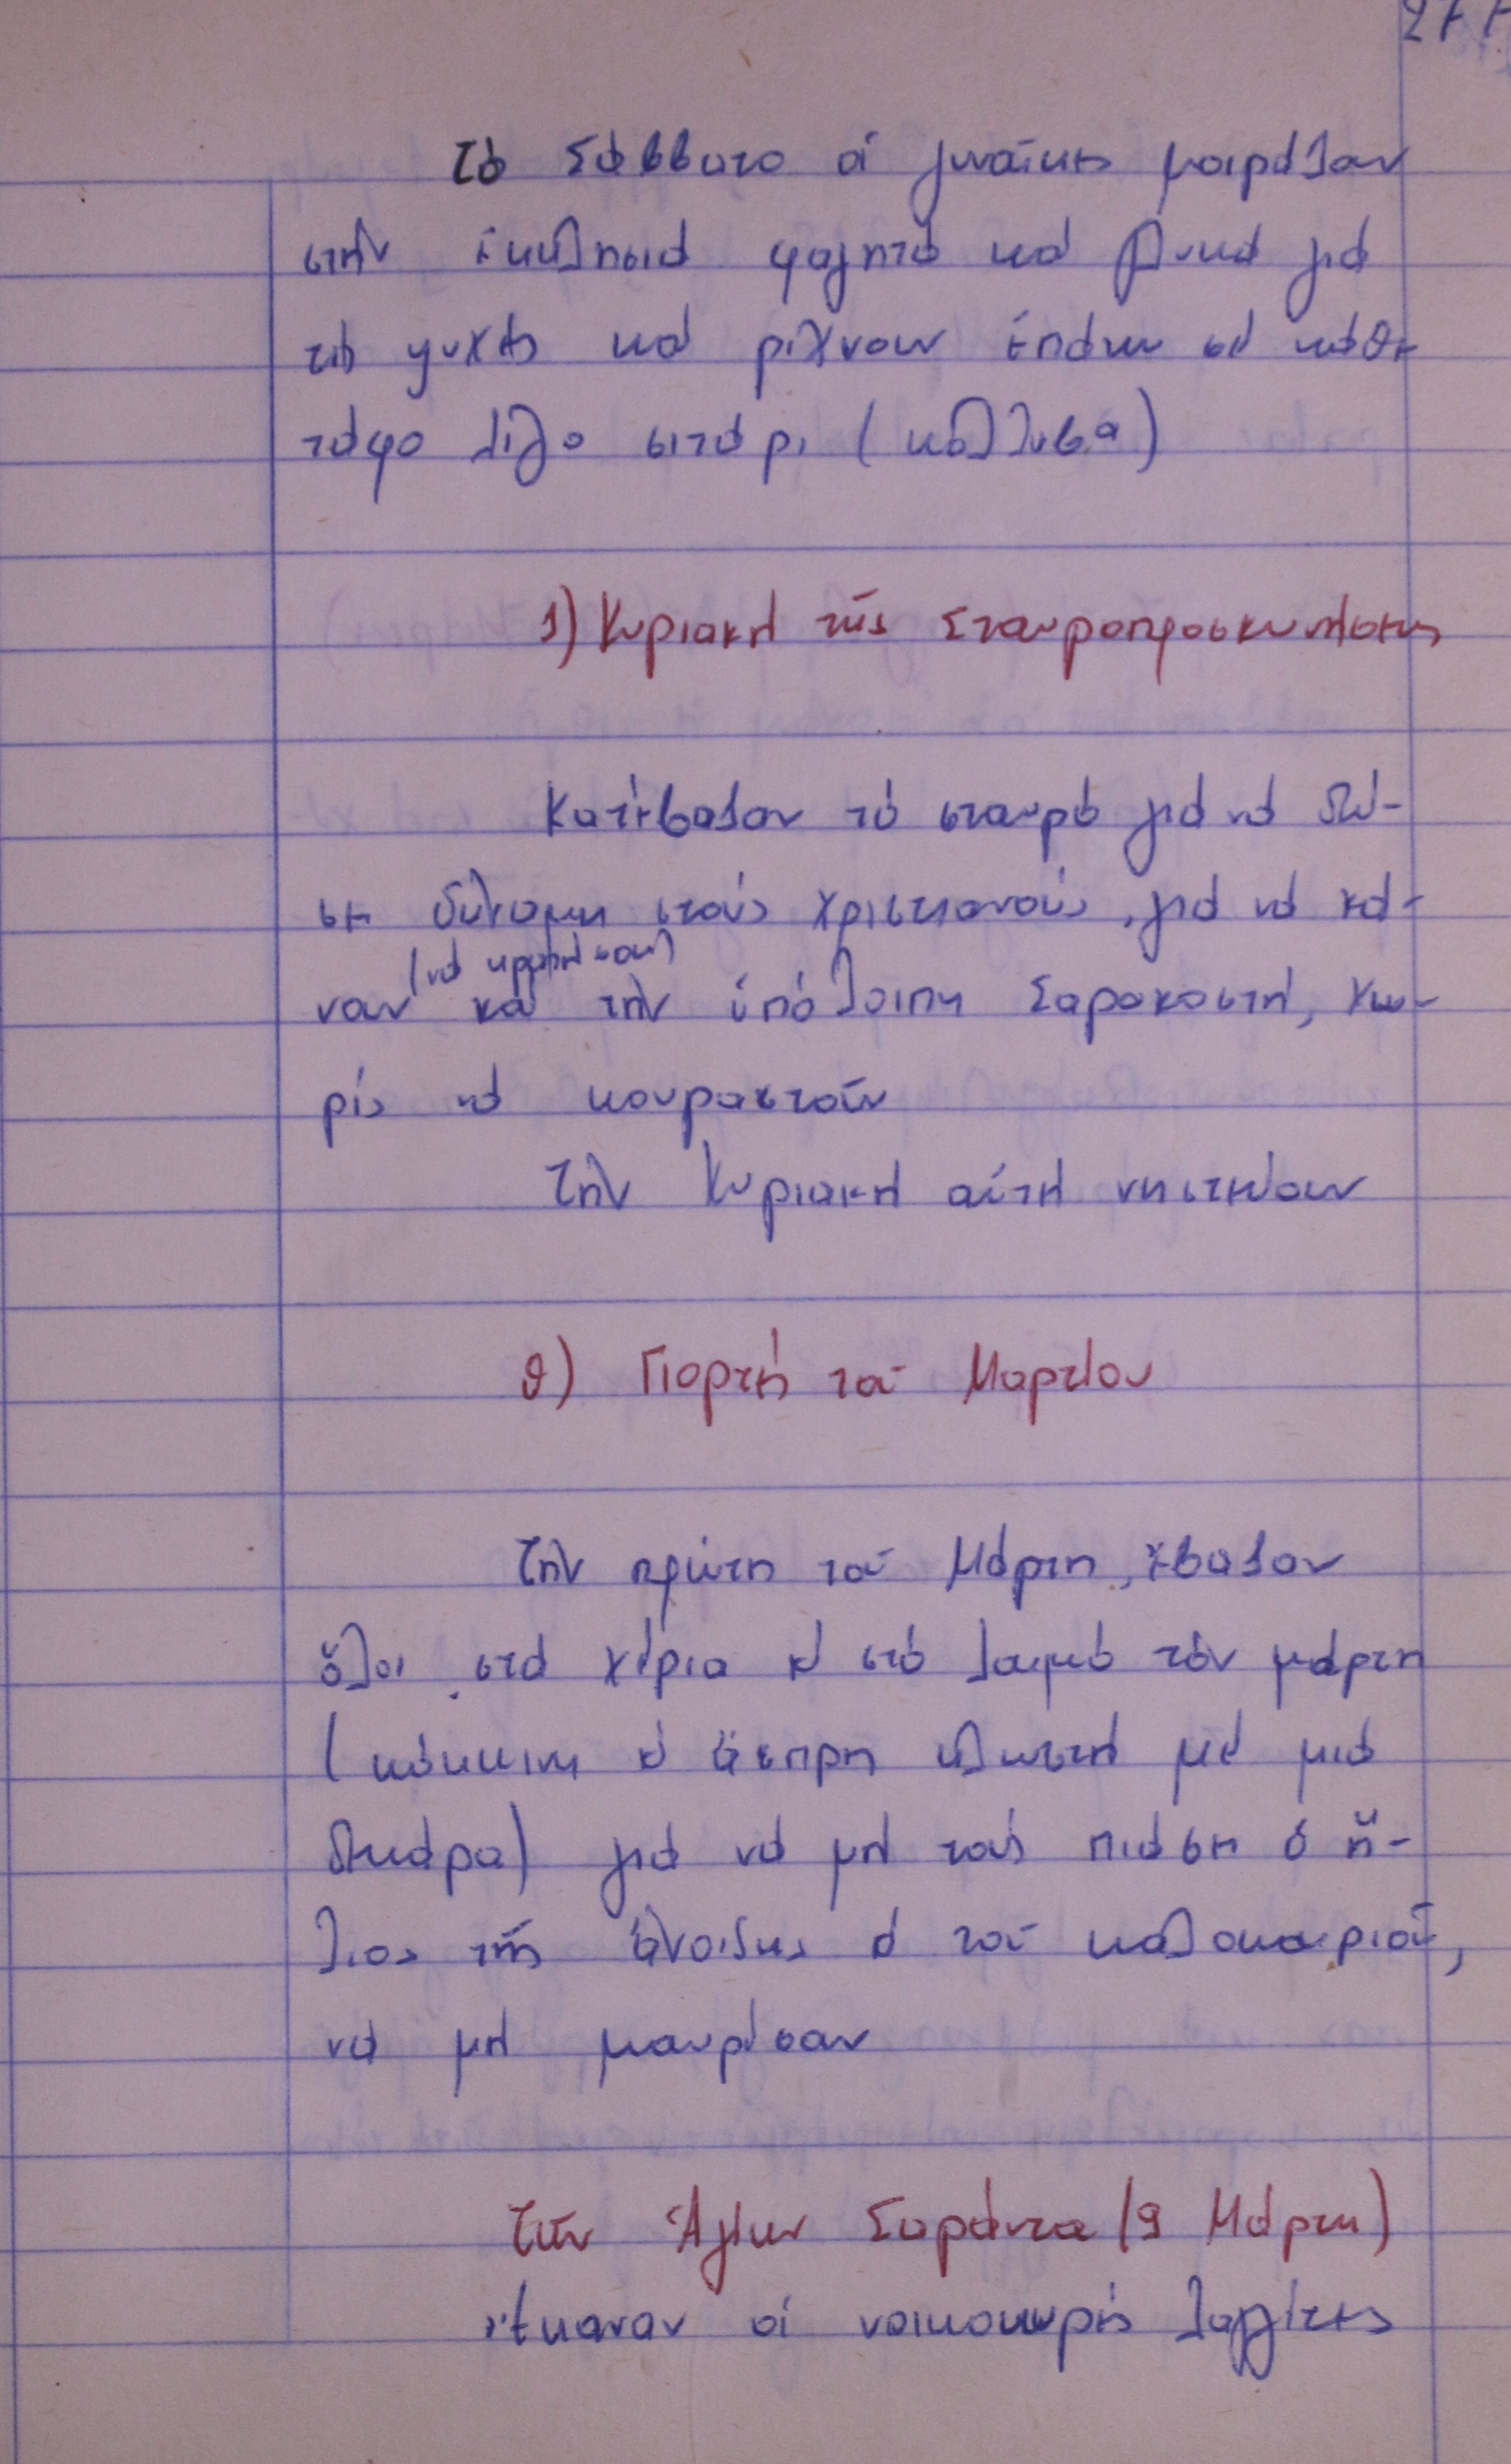 277
Τό Σάββατο οἱ γυναῖκες μοιράζαν
στήν ἐκκλησιά φαγητό καί γλυκά γιά
τίς ψυχές καί ρίχνουν ἐπάνω σέ κάθε
τάφο λίγο σιτάρι (κόλλυβα)
1) Κυριακή τῆς Σταυροπροσκυνήσεως
Κατέβαζαν τό σταυρό γιά νά δώ-
σει δύναμη στούς χριστιανούς, γιά νά κά-
(νά κρατήσουν)
ναν καί τήν ὑπόλοιπη Σαρακοστή, χω-
ρίς νά κουραστοῦν
Τήν Κυριακή αὐτή νηστεύουν
θ) Γιορτές τοῦ Μαρτίου
Τήν πρώτη τοῦ Μάρτη, ἔβαζαν
ὅλοι στά χέρια κ' στό λαιμό τόν μάρτη
(κόκκινη κ' ἄσπρη κλωστή μέ μιά
δεκάρα) γιά νά μή τούς πιάσει ὁ ἥ-
λιος τῆς ἄνοιξης κ' τοῦ καλοκαιριοῦ,
νά μή μαυρίσουν
Τῶν Ἁγίων Σαράντα (9 Μάρτη)
ἔκαναν οἱ νοικοκυρές λαλγίτες